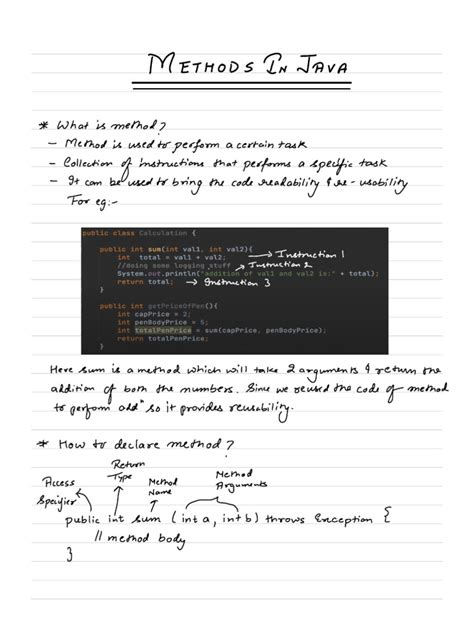 METHODS IN JAVA
* What is method?
- Method is used to perform a certain task
- Collection of instructions that performs a specific task
- It can be used to bring the code readability & re-usability
For eg:-
public class Calculation {
public int sum(int val1, int val2){
int total = val1 + val2; → Instruction 1
//doing some logging stuff → Instruction 2
System.out.println("addition of val1 and val2 is:" + total);
return total; → Instruction 3
}
public int getPriceOfPen(){
int capPrice = 2;
int penBodyPrice = 5;
int totalPenPrice = sum(capPrice, penBodyPrice);
return totalPenPrice;
}
Here sum is a method which will take 2 arguments & return the
addition of both the numbers. Since we reused the code of method
to perform add" so it provides reusability.
* How to declare method?
Access Specifier
Return Type
Method Name
Method Arguments
public int sum (int a, int b) throws Exception {
// method body
}